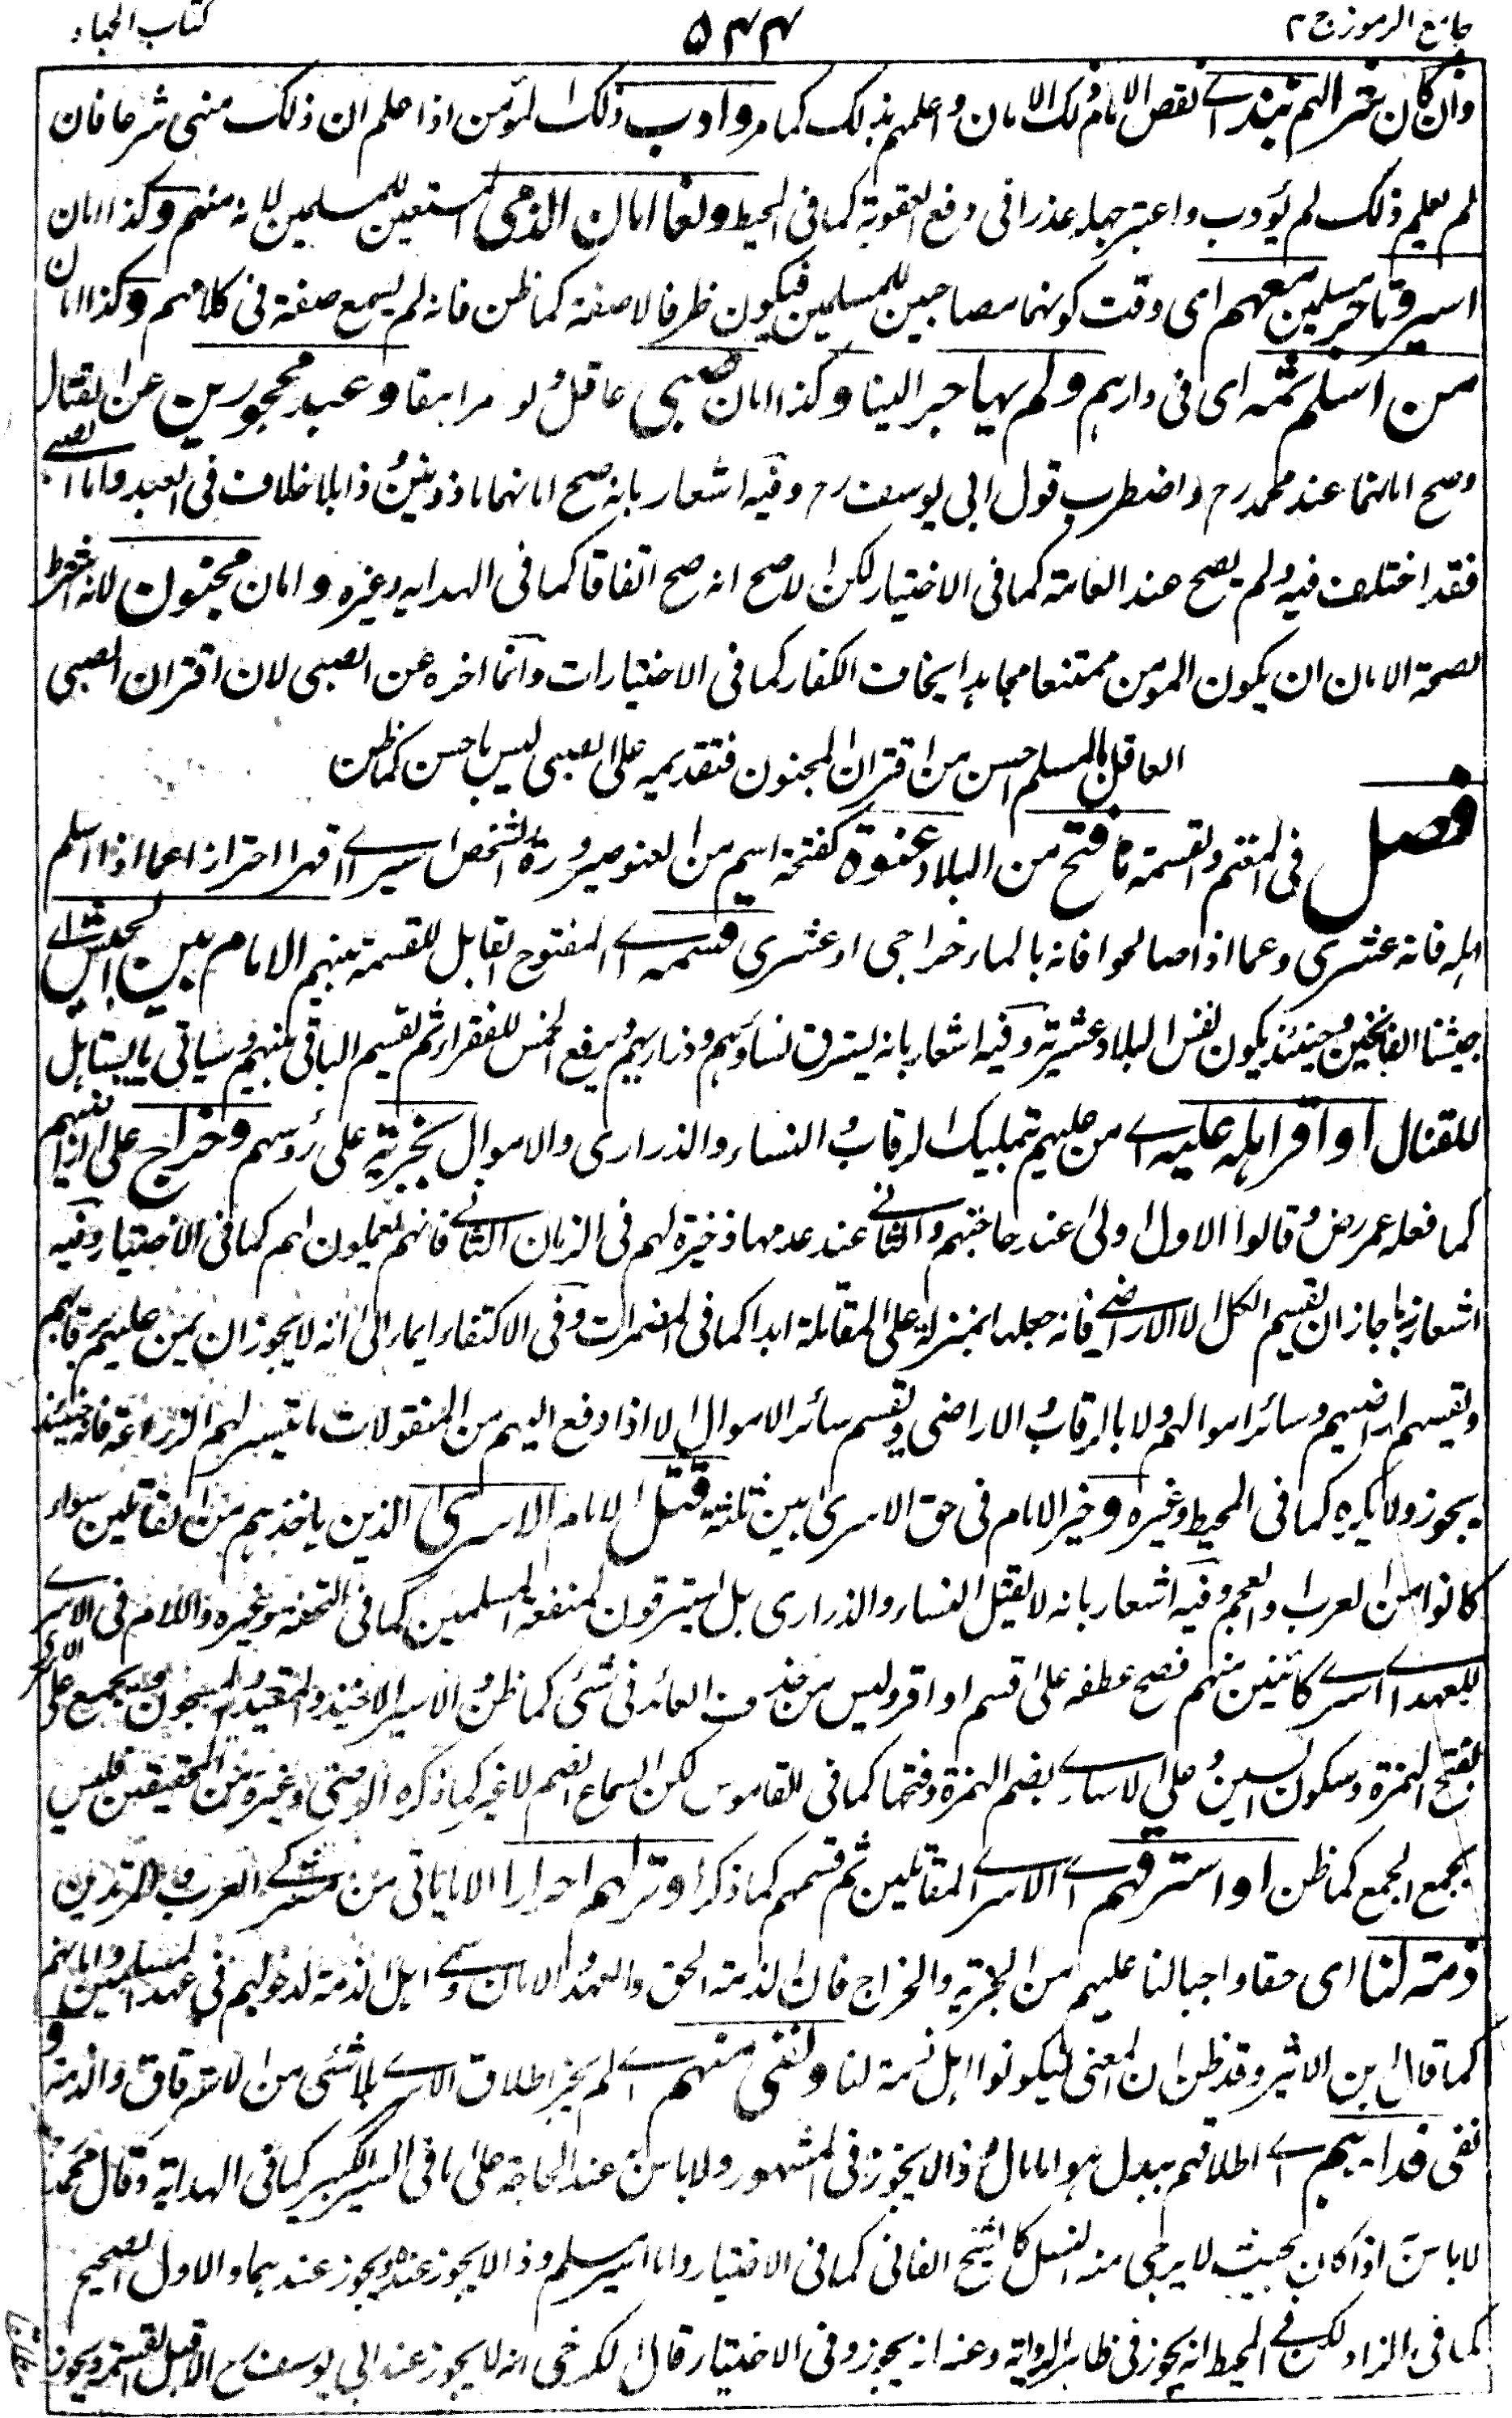 جامع الرموز ج ٢
٥٤٤
كتاب الجهاد
وان كان شر الهم نبذ اے نقض الامام ذلك الامان و اعلمهم بذلك كما مر و ادب ذلك المؤمن اذا علم ان ذلك منهى شرعا فان
لم يعلم ذلك لم يؤدب واعتبر جهله عذرا فى دفع العقوبة كما فى المحيط ولغا امان الذمى المستعين للمسلمين لانه منهم وكذا امان
اسير وتاجر مسلمين معهم اى وقت كونهما مصاحبين للمسلمين فيكون ظرفا لا صفة كما ظن فانه لم يسمع صفة فى كلامهم وكذا امان
من اسلم ثمه اى فى دارهم ولم يهاجر الينا وكذا امان صبى عاقل و لو مراهقا وعبد محجورين عن القتال
وصح امانهما عند محمد رح واضطرب قول ابى يوسف رح وفيه اشعار بانه صح امانهما ماذونين و ذا بلا خلاف فى العبد واما الصبى
فقد اختلف فيه ولم يصح عند العامة كما فى الاختيار لكن الاصح انه صح اتفاقا كما فى الهدايه وغيره وامان مجنون لانه اشترط
لصحة الامان ان يكون المومن ممتنعا مجاهدا يخاف الكفار كما فى الاختيارات وانما اخره عن الصبى لان اقتران الصبى
العاقل بالمسلم احسن من اقتران المجنون فتقديمه على الصبى ليس باحسن كما ظن
فصل فى المغنم والقسمة ما فتح من البلاد عنوة كفتحة اسم من العنو صيرورة الشخص اسيرا اے قهرا احترازا عما اذا اسلم
اهله فانه عشرى وعما اذا صالحوا فانه بالماء خراجى او عشرى قسمه اے المفتوح القابل للقسمة بينهم الامام بين الجيش اے
جيشنا الفاتحين وحينئذ يكون نفس البلاد عشرية وفيه اشعار بانه يسترق نساؤهم وذراريهم ويرفع الخمس للفقراء ثم يقسم الباقى بينهم وسياتى ما يستاهل
للقتال او اقر اهله عليه اے من عليهم بتمليك الرقاب و النساء والذرارى والاموال بجزية على رؤسهم وخراج على اراضيهم
كما فعله عمر رض و قالوا الاول اولى عند حاجتهم والثانے عند عدمها ذخيرة لهم فى الزمان الثانے فانهم يعملون لهم كما فى الاختيار وفيه
اشعار بانه جاز ان يقسم الكل الا الاراضے فانه جعلها بمنزلة على المقاتلة ابدا كما فى المضمرات وفى الاكتفاء ايماء الى انه لا يجوز ان يمن عليهم برقابهم
ويقسم اراضيهم وسائر اموالهم ولا بالرقاب و الاراضى ويقسم سائر الاموال الا اذا دفع اليهم من المنقولات ما يتيسر لهم الزراعة فانه حينئذ
يجوز ولا يكره كما فى المحيط وغيره وخير الامام فى حق الاسرى بين ثلثة قتل الامام الاسرى الذين ياخذهم من المقاتلين سواء
كانوا من العرب او العجم وفيه اشعار بانه لا يقتل النساء والذرارى بل يسترقون لمنفعة المسلمين كما فى التحفة وغيره واللام فى الاسرے
للعهد اے اسرے كائنين منهم فصح عطفه على قسم او اقر وليس من حذف العائد فى شئ كما ظن و الاسير الاخيذ والمقيد و المسجون ويجمع على
بفتح الهمزة وسكون السين و على الاسارے بضم الهمزة وفتحها كما فى القاموس لكن السماع الضم لا غير كما ذكره الرضى وغيره من المحققين فليس
بجمع الجمع كما ظن او استرقهم اے الاسرے المقاتلين ثم قسمهم كما ذكر او تركهم احرارا الا ما ياتى من مشركے العرب و المرتدين
ذمة لنا اى حقا واجبا لنا عليهم من الجزية والخراج فان الذمة الحق والعهد و الامان وسمى اهل الذمة لدخولهم فى عهد المسلمين وامانهم
كما قال ابن الاثير وقد ظن ان المعنى ليكونوا اهل ذمة لنا ونفى منهم اے لم يجز اطلاق الاسرے بلا شئ من الاسترقاق والذمة و
نفى فداءهم اے اطلاقهم ببدل هو اما مال و ذا لا يجوز فى المشهور ولا باس عند الحاجة على ما فى السير الكبير كما فى الهداية وقال محمد
لا باس اذا كان بحيث لا يرجى منه النسل كالشيخ الفانى كما فى الاختيار واما اسير مسلم وذا لا يجوز عنده ويجوز عندهما والاول الصحيح
كما فى الزاد لكن فے المحيط انه يجوز فى ظاهر الرواية وعنه انه يجوز وفى الاختيار قال الكرخى انه لا يجوز عند ابى يوسف رح الا قبل القسمة ويجوز